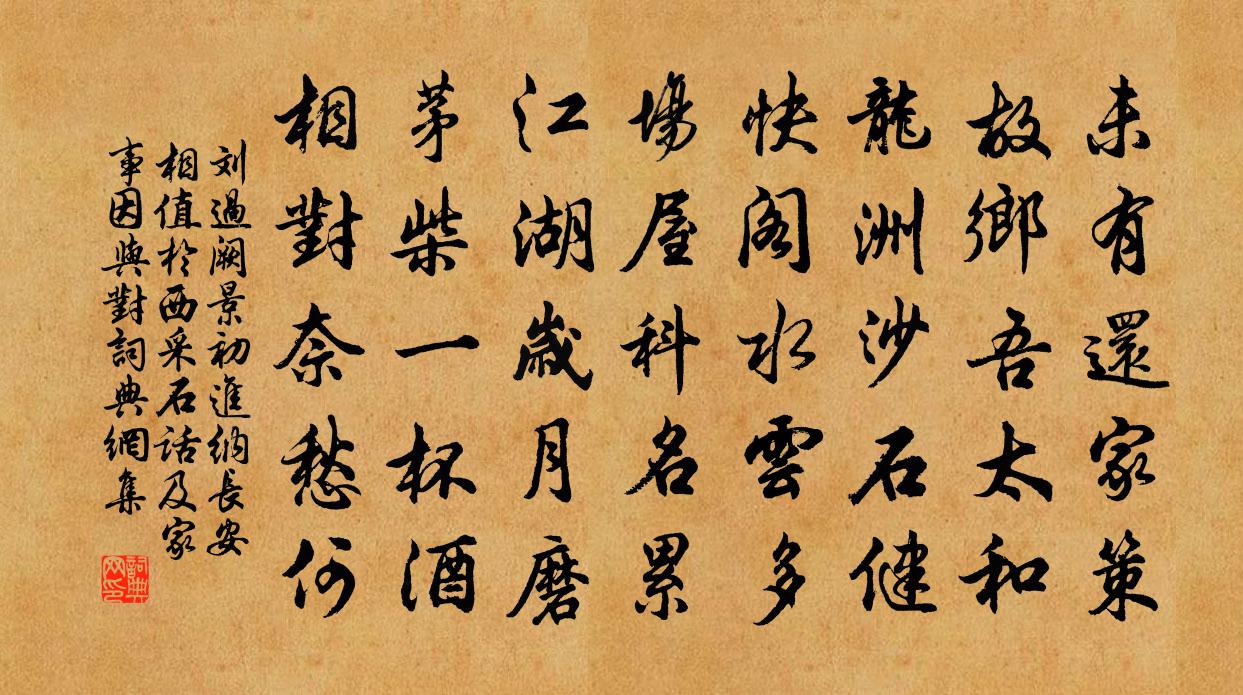 未有還家策
故鄉吾太和
龍洲沙石健
快阁水雲多
場屋科名累
江湖歲月磨
茅柴一杯酒
相對奈愁何
刘過阙景初進納長安
相值於西采石話及家
事因與對詞典網集
詞典网印